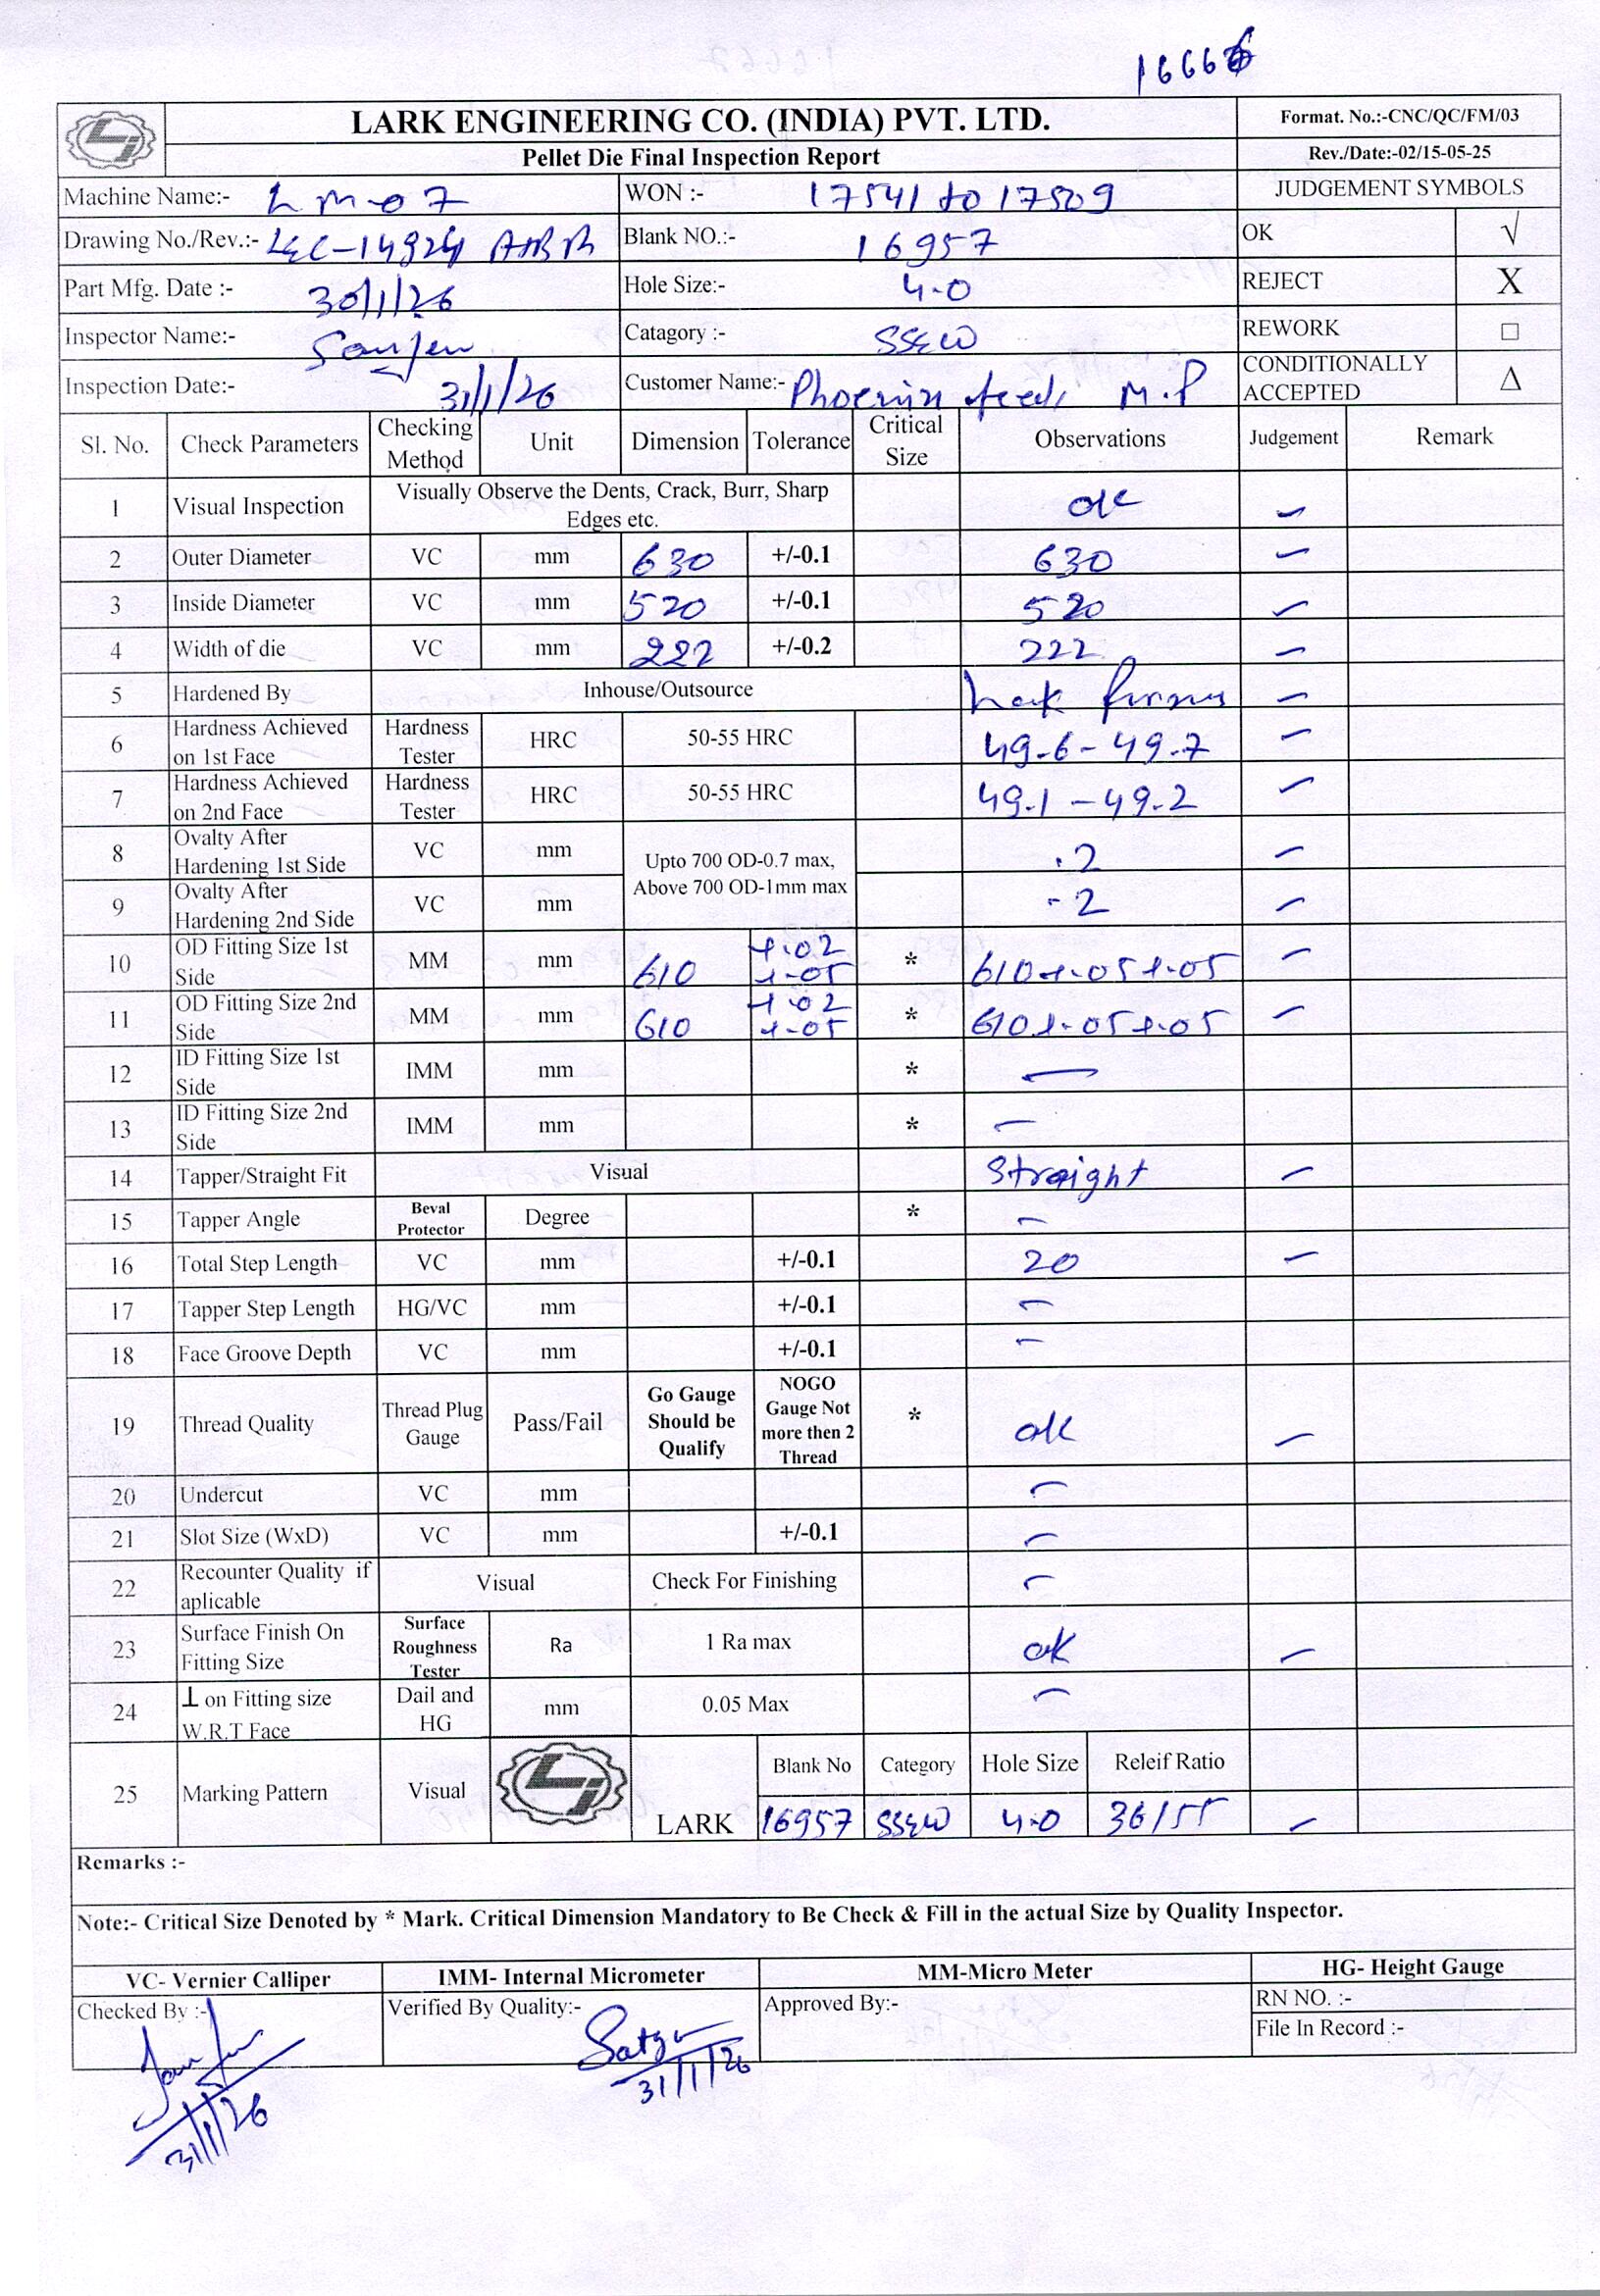 16666
LARK ENGINEERING CO. (INDIA) PVT. LTD.
Format. No.:-CNC/QC/FM/03
Pellet Die Final Inspection Report
Rev./Date:-02/15-05-25
Machine Name:- LM-07 WON :- 17541 to 17509 JUDGEMENT SYMBOLS
Drawing No./Rev.:- LEC-14924 Blank NO.:- 16957 OK √
Part Mfg. Date :- 30/1/26 Hole Size:- 4.0 REJECT X
Inspector Name:- Catagory :- SS&W REWORK □
Inspection Date:- 31/1/26 Customer Name:- Phoenix feeds M.P CONDITIONALLY ACCEPTED Δ
Sl. No. Check Parameters Checking Method Unit Dimension Tolerance Critical Size Observations Judgement Remark
1 Visual Inspection Visually Observe the Dents, Crack, Burr, Sharp Edges etc. ok
2 Outer Diameter VC mm 630 +/-0.1 630
3 Inside Diameter VC mm 520 +/-0.1 520
4 Width of die VC mm 222 +/-0.2 222
5 Hardened By Inhouse/Outsource
6 Hardness Achieved on 1st Face Hardness Tester HRC 50-55 HRC 49.6 - 49.7
7 Hardness Achieved on 2nd Face Hardness Tester HRC 50-55 HRC 49.1 - 49.2
8 Ovalty After Hardening 1st Side VC mm Upto 700 OD-0.7 max, Above 700 OD-1mm max .2
9 Ovalty After Hardening 2nd Side VC mm .2
10 OD Fitting Size 1st Side MM mm 610 +.02 +.05 * 610+.05+.05
11 OD Fitting Size 2nd Side MM mm 610 +.02 +.05 * 610+.05+.05
12 ID Fitting Size 1st Side IMM mm * —
13 ID Fitting Size 2nd Side IMM mm * —
14 Tapper/Straight Fit Visual Straight
15 Tapper Angle Beval Protector Degree * —
16 Total Step Length VC mm +/-0.1 20
17 Tapper Step Length HG/VC mm +/-0.1 —
18 Face Groove Depth VC mm +/-0.1 —
19 Thread Quality Thread Plug Gauge Pass/Fail Go Gauge Should be Qualify NOGO Gauge Not more then 2 Thread * ok
20 Undercut VC mm —
21 Slot Size (WxD) VC mm +/-0.1 —
22 Recounter Quality if aplicable Visual Check For Finishing —
23 Surface Finish On Fitting Size Surface Roughness Tester Ra 1 Ra max ok
24 ⊥ on Fitting size W.R.T Face Dail and HG mm 0.05 Max —
25 Marking Pattern Visual LARK Blank No Category Hole Size Releif Ratio
16957 SS&W 4.0 36/55
Remarks :-
Note:- Critical Size Denoted by * Mark. Critical Dimension Mandatory to Be Check & Fill in the actual Size by Quality Inspector.
VC- Vernier Calliper IMM- Internal Micrometer MM-Micro Meter HG- Height Gauge
Checked By :- Verified By Quality:- Approved By:- RN NO. :-
File In Record :-
31/1/26
31/1/26